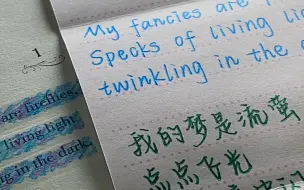 1
are fireflies,
living light
in the dark.
My fancies are
Specks of living
twinkling in the
我的梦是流萤
点点飞光